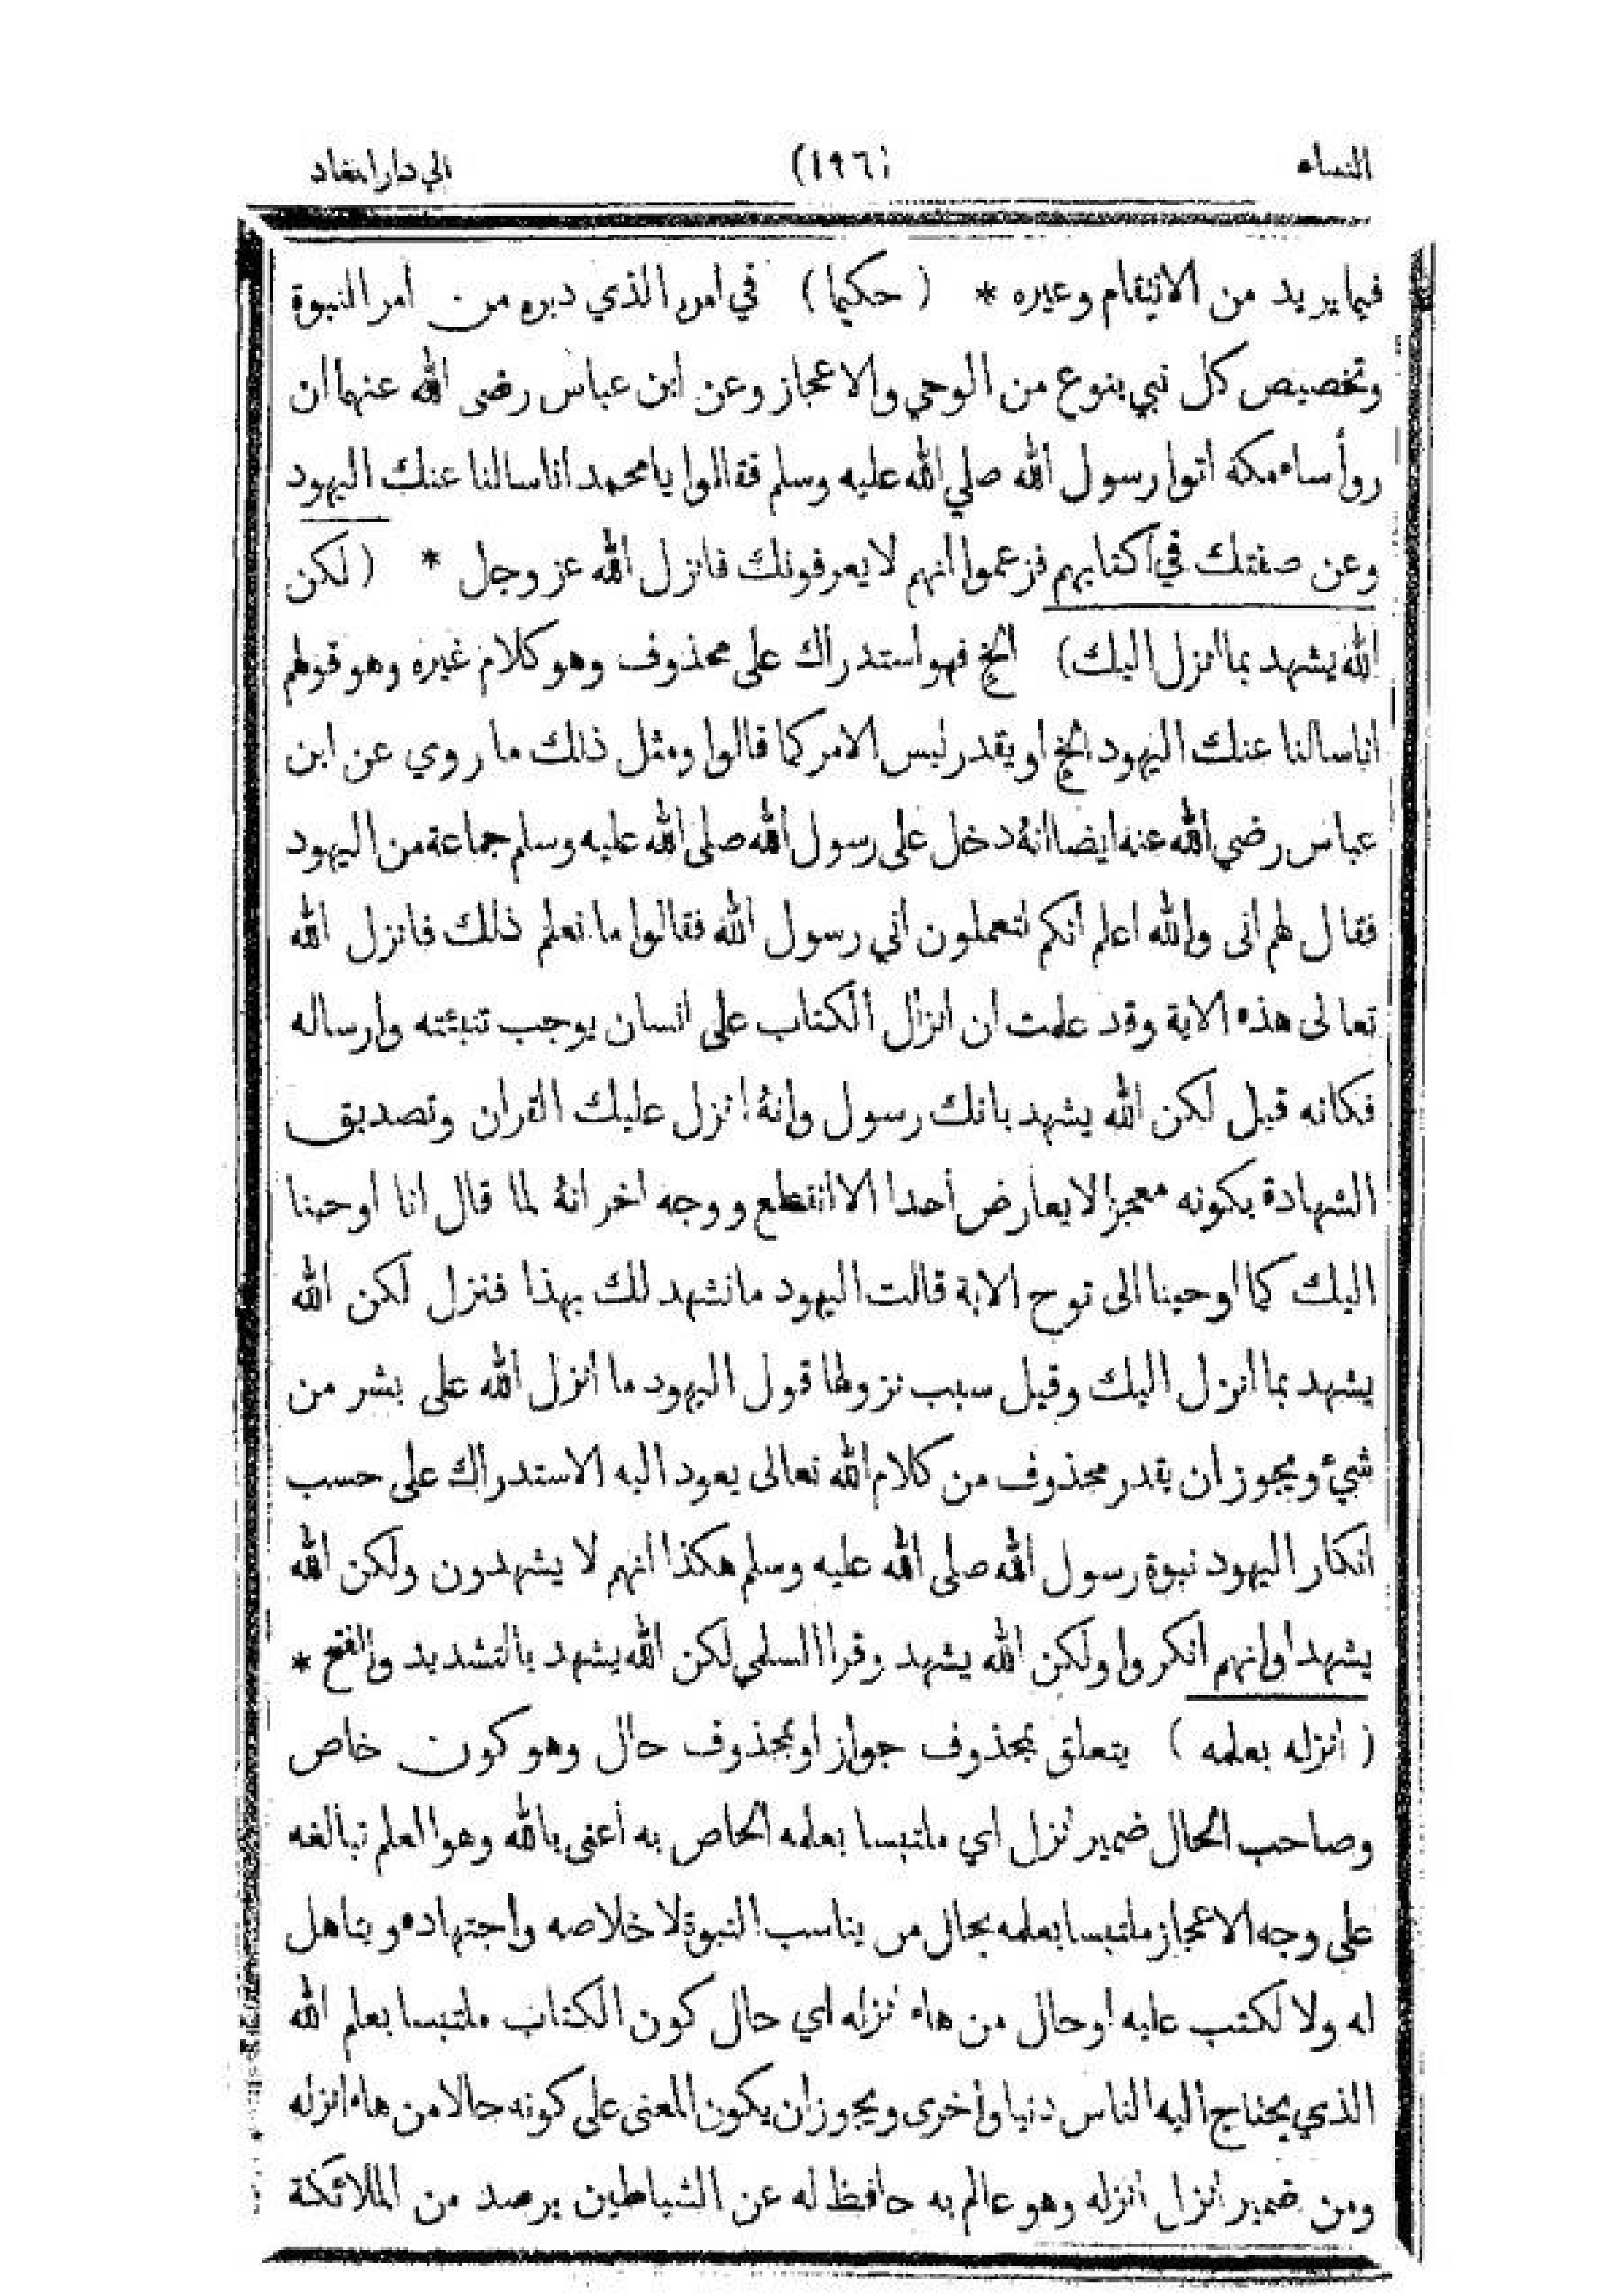 النساء (١٩٦) الي دار المعاد
فيما يريد من الانتقام وغيره * ( حكيما ) في امره الذي دبره من امر النبوة
وتخصيص كل نبي بنوع من الوحي والاعجاز وعن ابن عباس رضى الله عنهما ان
روأساء مكة اتوا رسول الله صلي الله عليه وسلم فقالوا يا محمد انا سالنا عنك اليهود
وعن صفتك في كتابهم فزعموا انهم لا يعرفونك فانزل الله عز وجل * ( لكن
الله يشهد بما انزل اليك ) الخ فهو استدراك على محذوف وهو كلام غيره وهو قولهم
انا سالنا عنك اليهود الخ او يقدر ليس الامر كما قالوا ومثل ذلك ما روي عن ابن
عباس رضي الله عنه ايضا انهُ دخل على رسول الله صلى الله عليه وسلم جماعة من اليهود
فقال لهم انى والله اعلم انكم لتعملون أني رسول الله فقالوا ما نعلم ذلك فانزل الله
تعالى هذه الاية وقد علمت ان انزال الكتاب على انسان يوجب تنبئته وارساله
فكانه قيل لكن الله يشهد بانك رسول وانهُ انزل عليك القران وتصديق
الشهادة بكونه معجزا لا يعارض أحدا الا انقطع ووجه اخر انهُ لما قال انا اوحينا
اليك كما اوحينا الى نوح الاية قالت اليهود ما نشهد لك بهذا فنزل لكن الله
يشهد بما انزل اليك وقيل سبب نزولها قول اليهود ما انزل الله على بشر من
شيئ ويجوز ان يقدر محذوف من كلام الله تعالى يعود اليه الاستدراك على حسب
انكار اليهود نبوة رسول الله صلى الله عليه وسلم هكذا انهم لا يشهدون ولكن الله
يشهد او انهم انكروا ولكن الله يشهد وقرا السلمي لكن الله يشهد بالتشديد والفتح *
( انزله بعلمه ) يتعلق بمحذوف جوازا وبمحذوف حال وهو كون خاص
وصاحب الحال ضمير أنزل اي ملتبسا بعلمه الخاص به أعنى بالله وهو العلم تبالغه
على وجه الاعجاز ملتبسا بعلمه بحال من يناسب النبوة لاخلاصه واجتهاده ويتاهل
له ولا لكتب عليه اوحال من هاء انزله اي حال كون الكتاب ملتبسا بعلم الله
الذي يحتاج اليه الناس دنيا واخرى ويجوز ان يكون المعنى على كونه حالا من هاء انزله
ومن ضمير انزل انزله وهو عالم به حافظ له عن الشياطين برصد من الملائكة